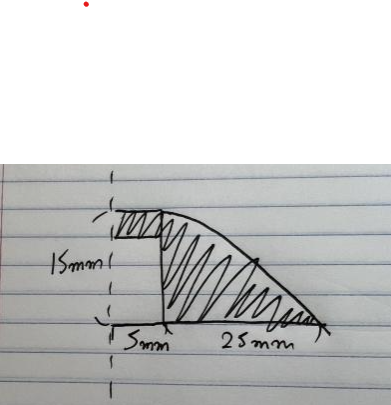 15mm
5mm 25mm